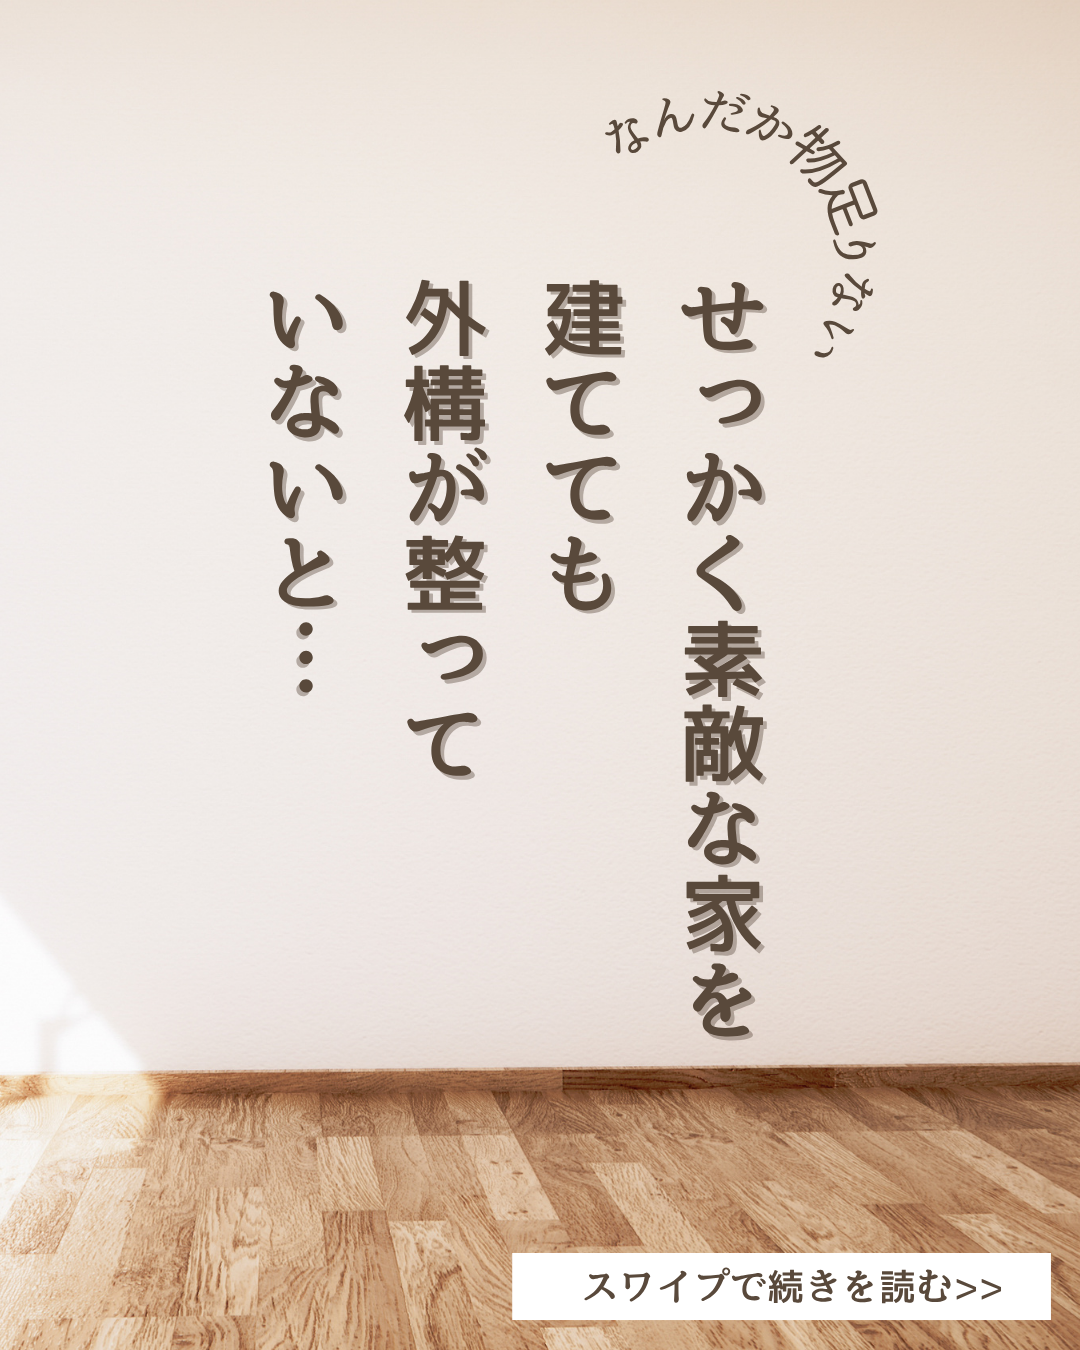 なんだか物足りない
せっかく素敵な家を
建てても
外構が整って
いないと…
スワイプで続きを読む>>